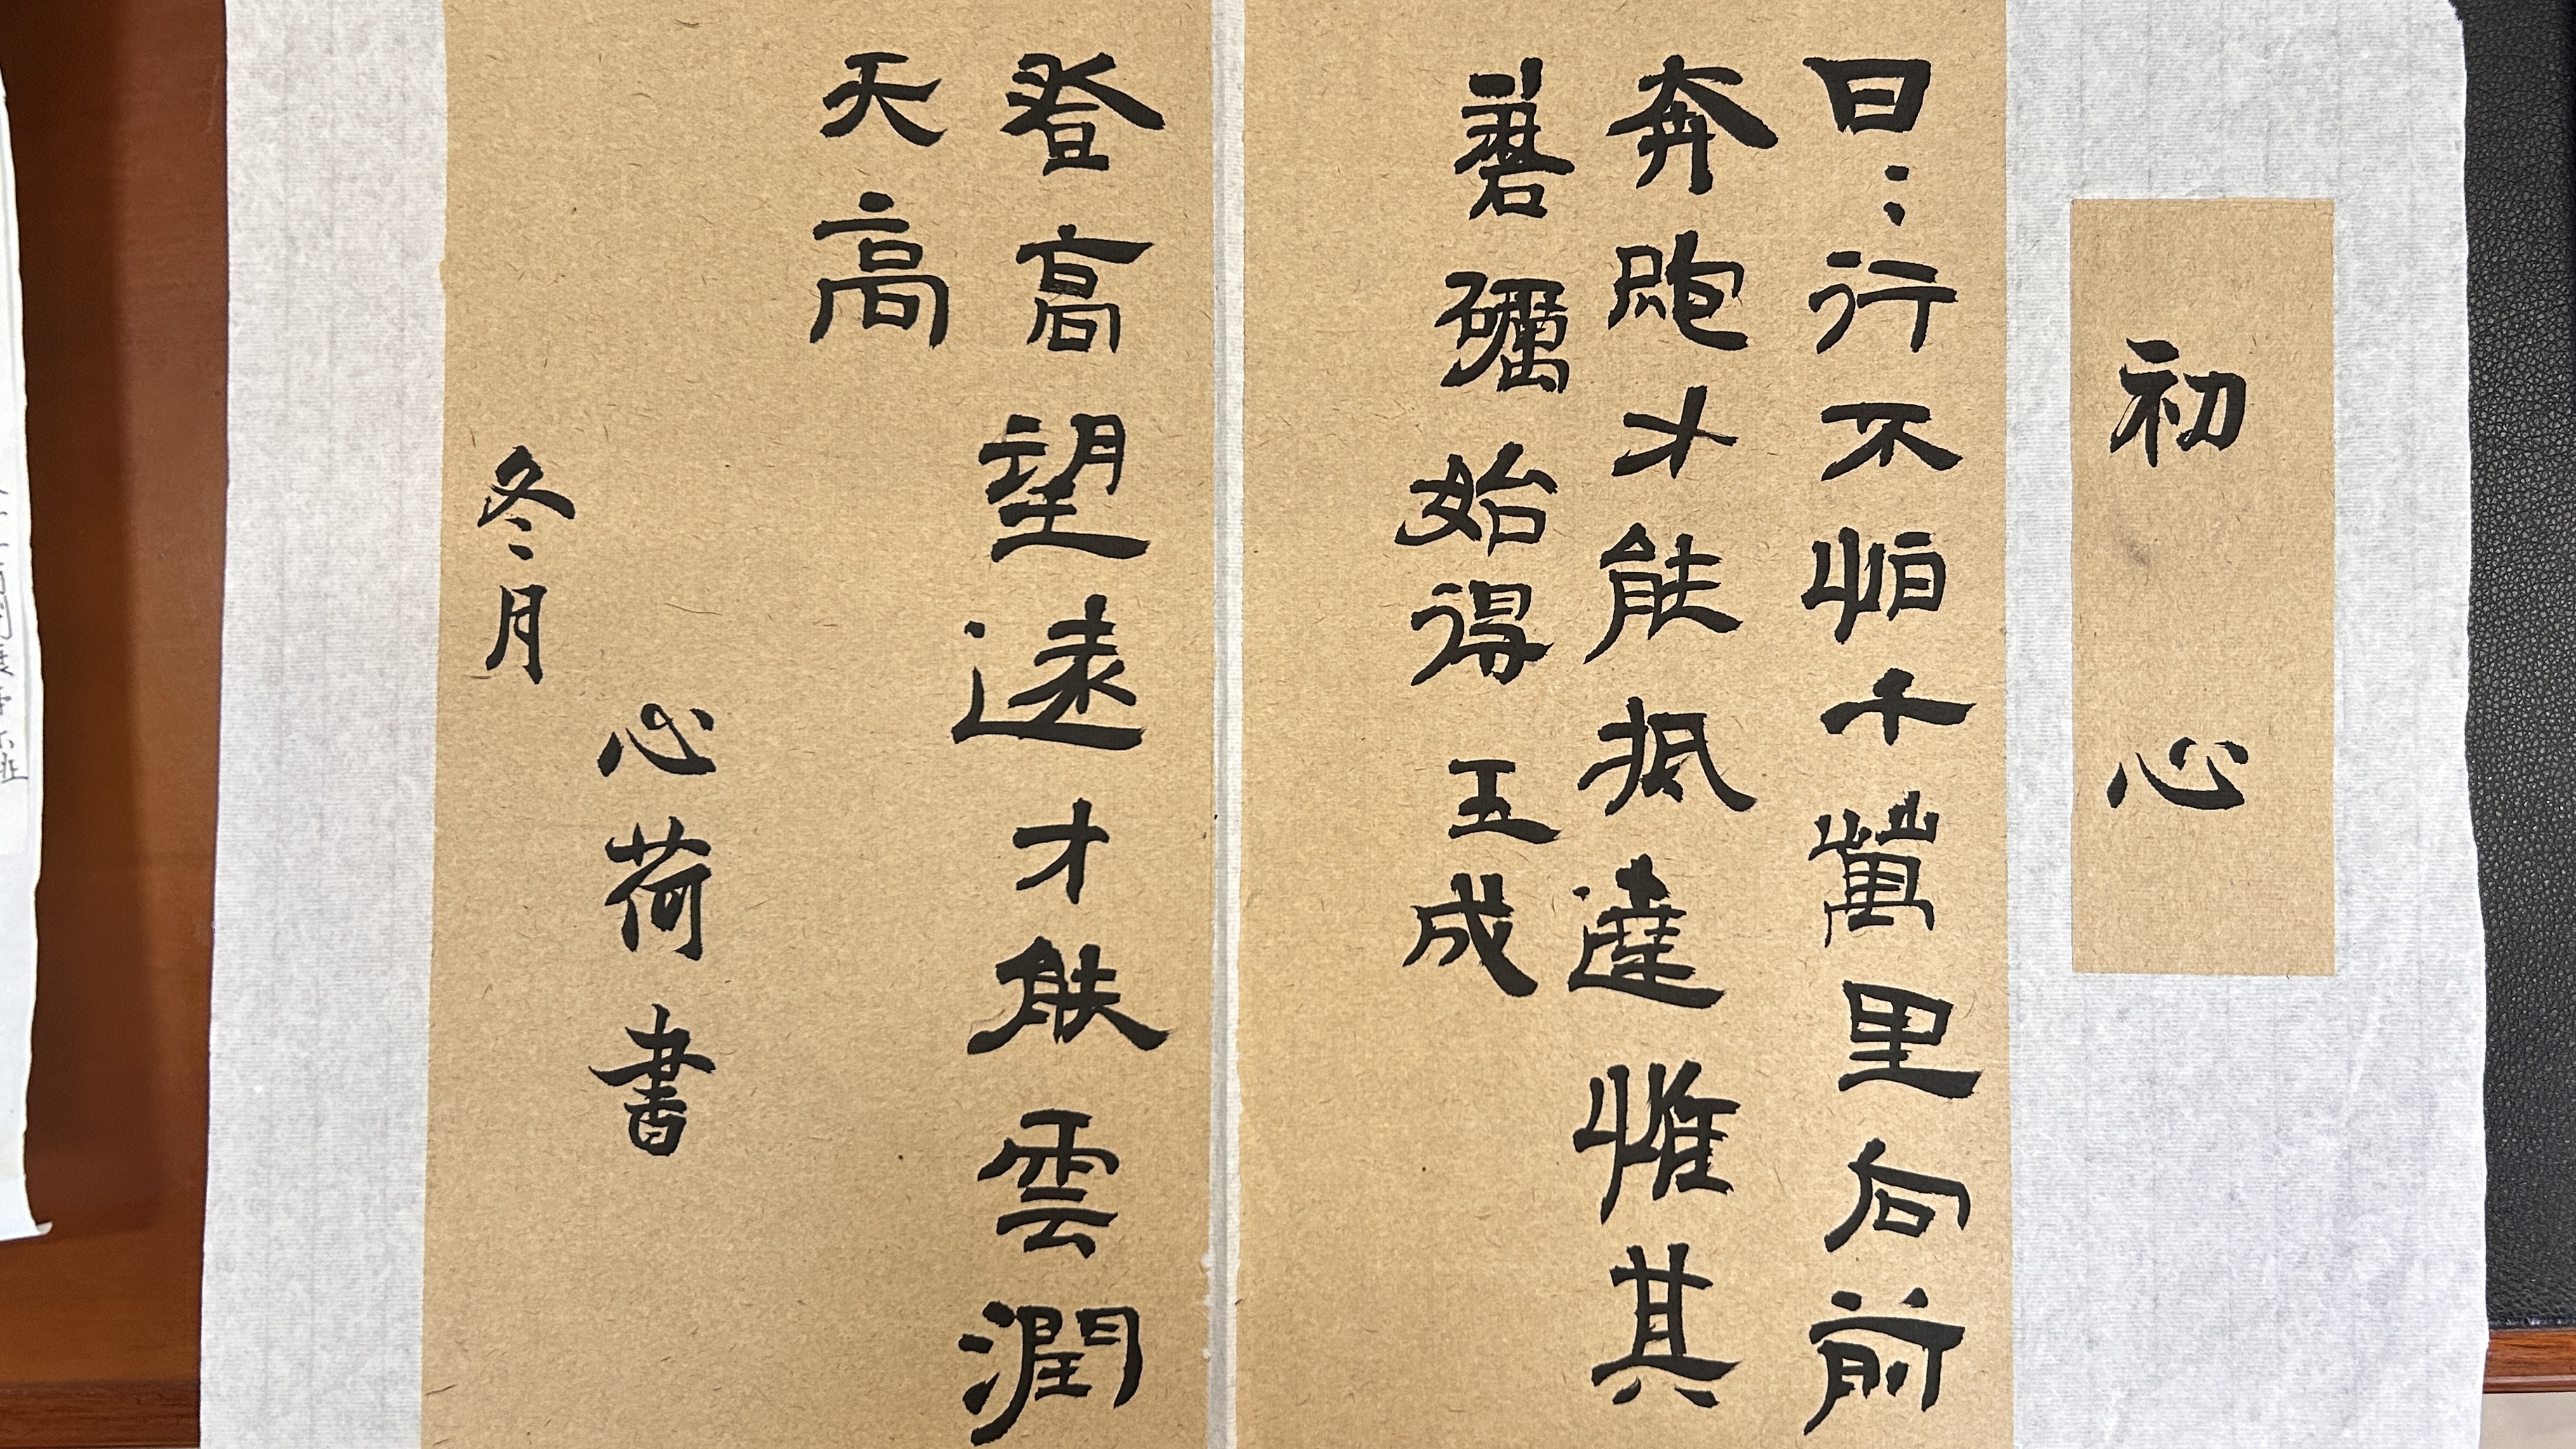 初心
日:行不怕千萬里向前
奔跑才能抵達惟其
磨礪始得玉成
登高望遠才能雲潤
天高
心荷書
冬月